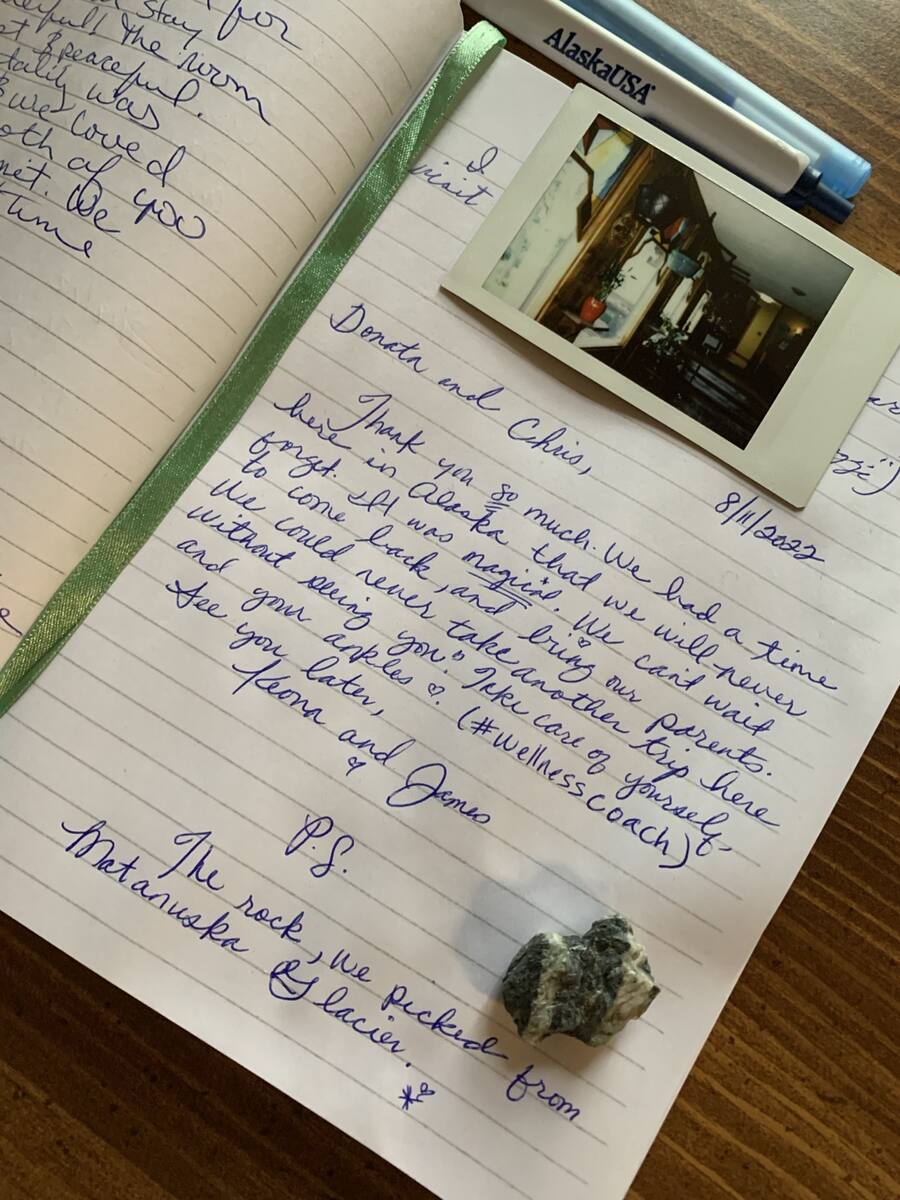 for
stay
the room
& peaceful.
was
& we loved
both of you
met. We
time
AlaskaUSA
I
visit
8/11/2022
Donata and Chris,
Thank you so much. We had a time
here in Alaska that we will never
forget. It was magical. We can't wait
to come back, and bring our parents.
We could never take another trip here
without seeing you! Take care of yourself
and your ankles ♡. (#wellnesscoach)
See you later,
Keona and James
P.S.
The rock, we picked from
Matanuska Glacier.